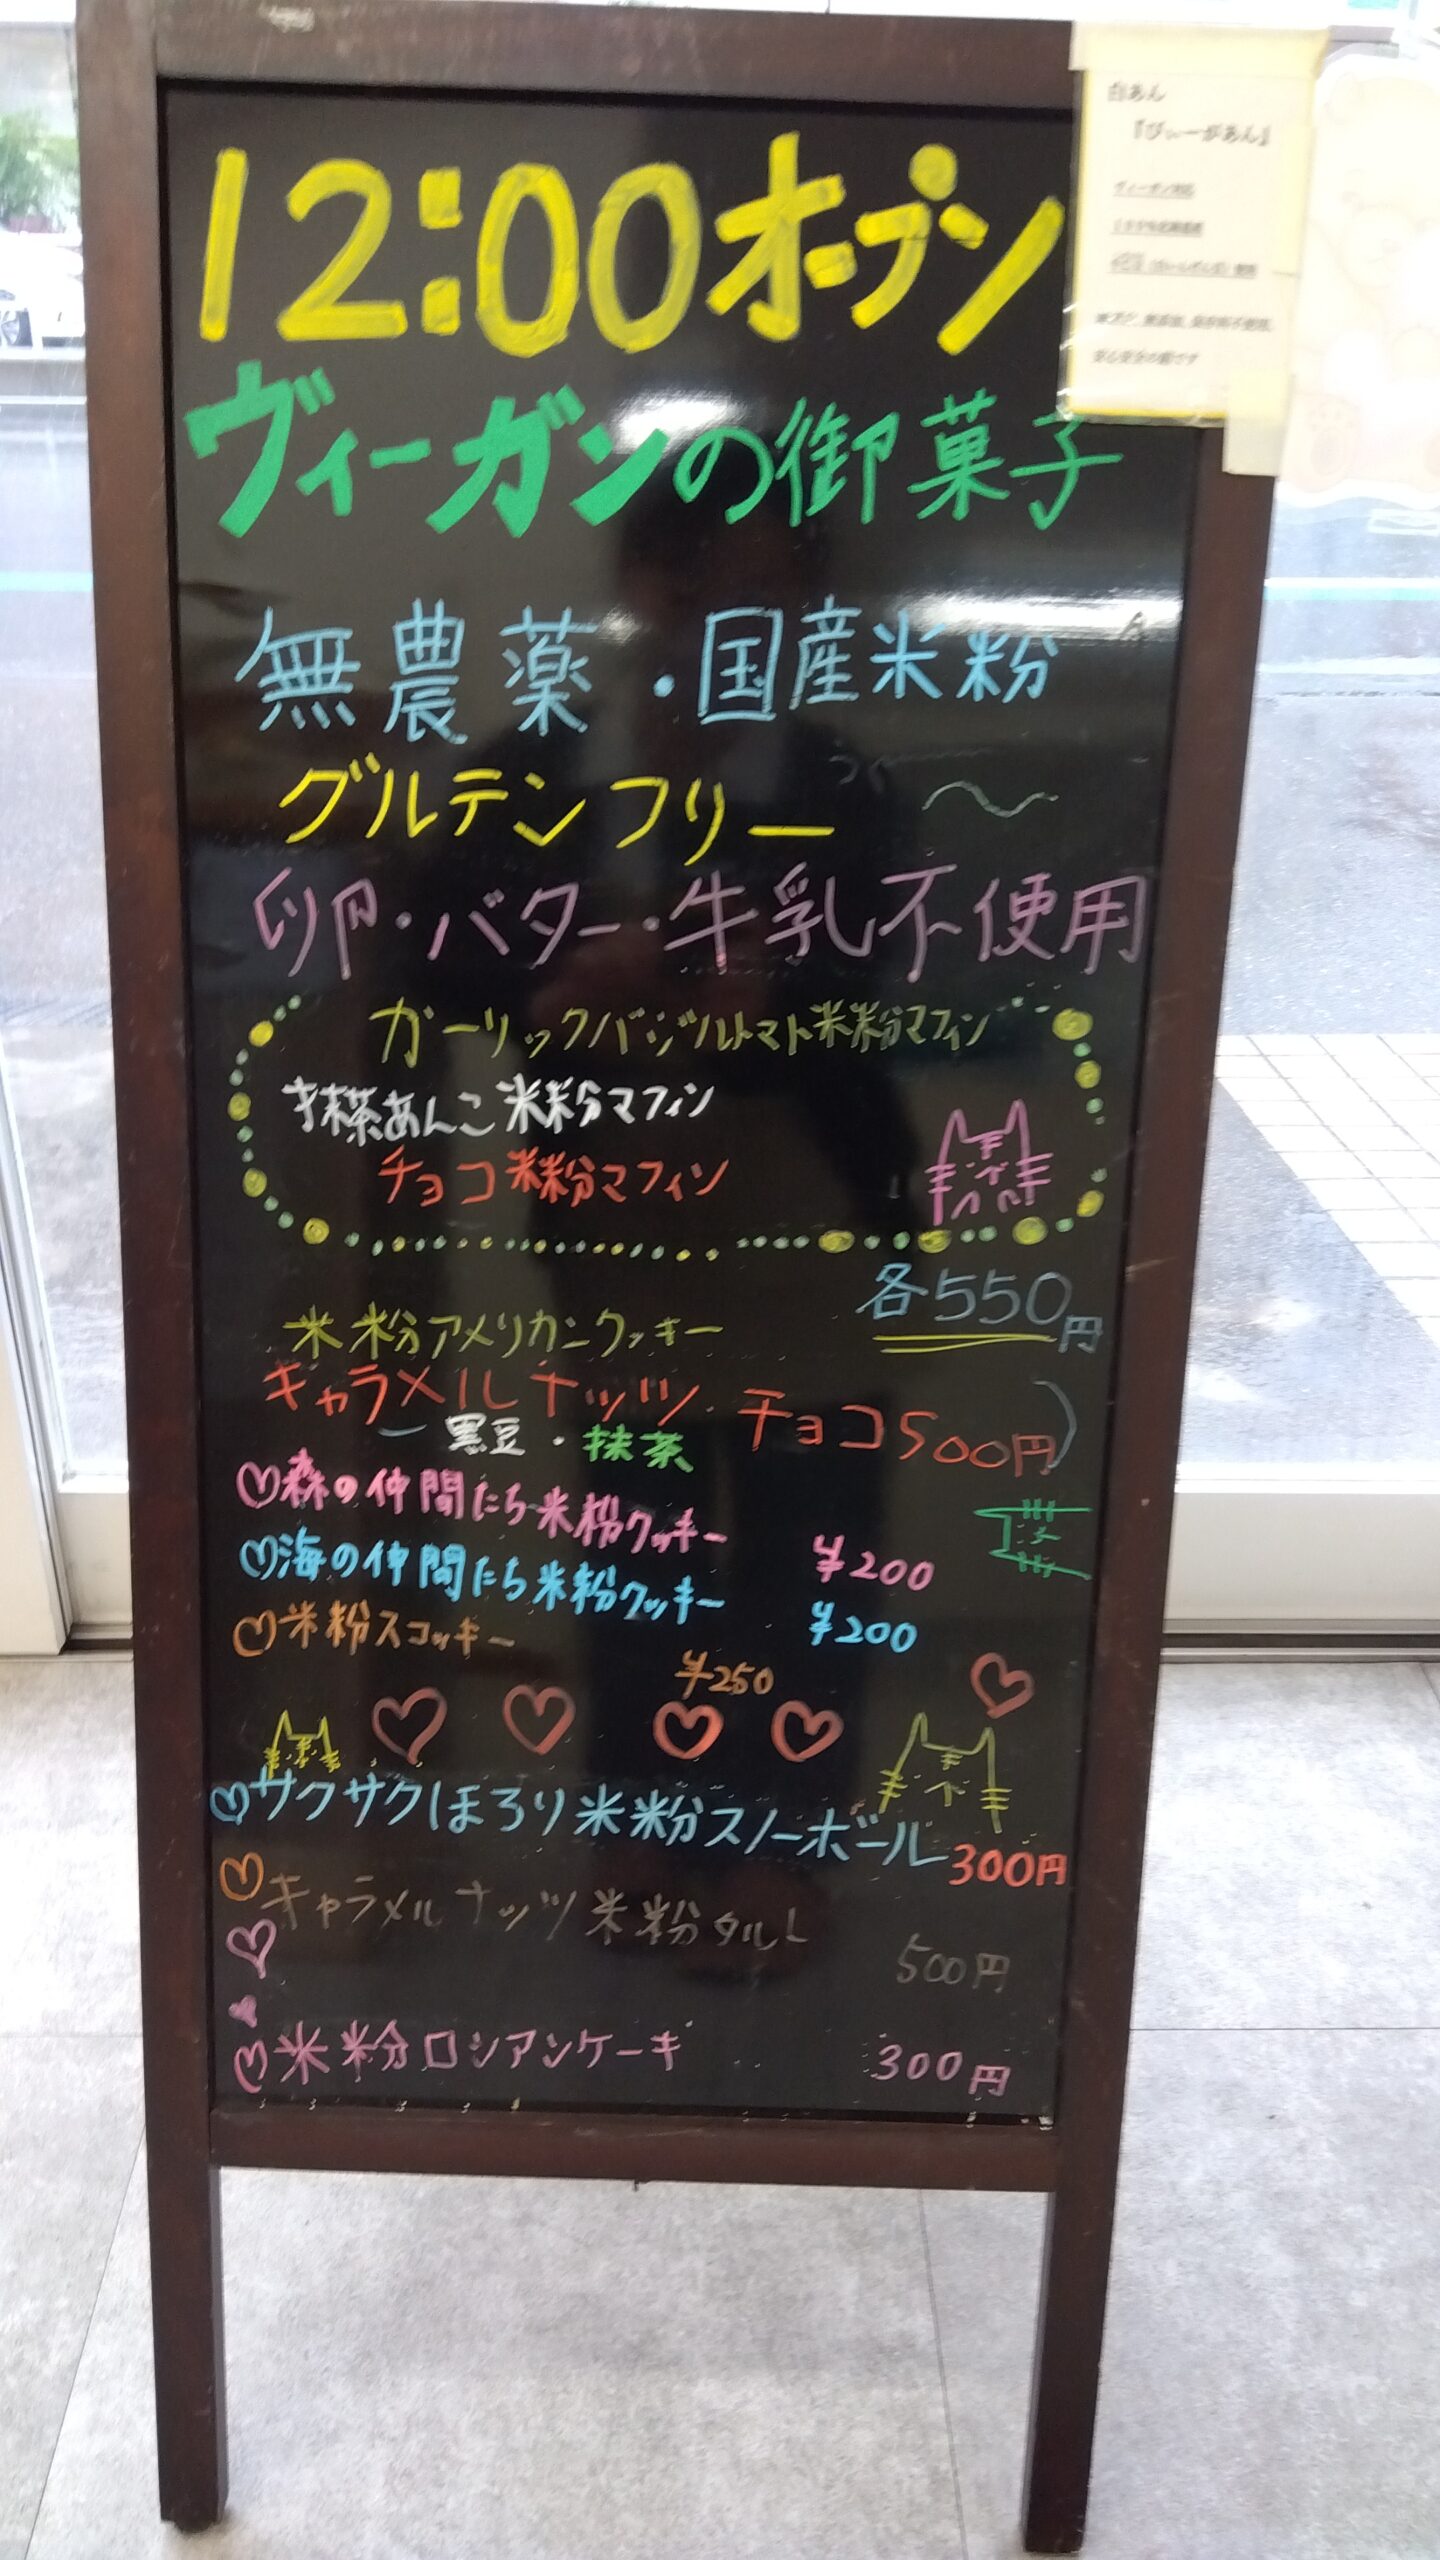 12:00オープン
白あん
『びぃーがあん』
ヴィーガン対応
安心安全の餡です
ヴィーガンの御菓子
無農薬・国産米粉
グルテンフリー
卵・バター・牛乳不使用
ガーリックバジルトマト米粉マフィン
抹茶あんこ米粉マフィン
チョコ米粉マフィン
各550円
米粉アメリカンクッキー
キャラメルナッツ・チョコ500円
黒豆・抹茶
♡森の仲間たち米粉クッキー ¥200
♡海の仲間たち米粉クッキー ¥200
♡米粉スコッキー ¥250
♡サクサクほろり米粉スノーボール300円
♡キャラメルナッツ米粉タルト 500円
♡米粉ロシアンケーキ 300円